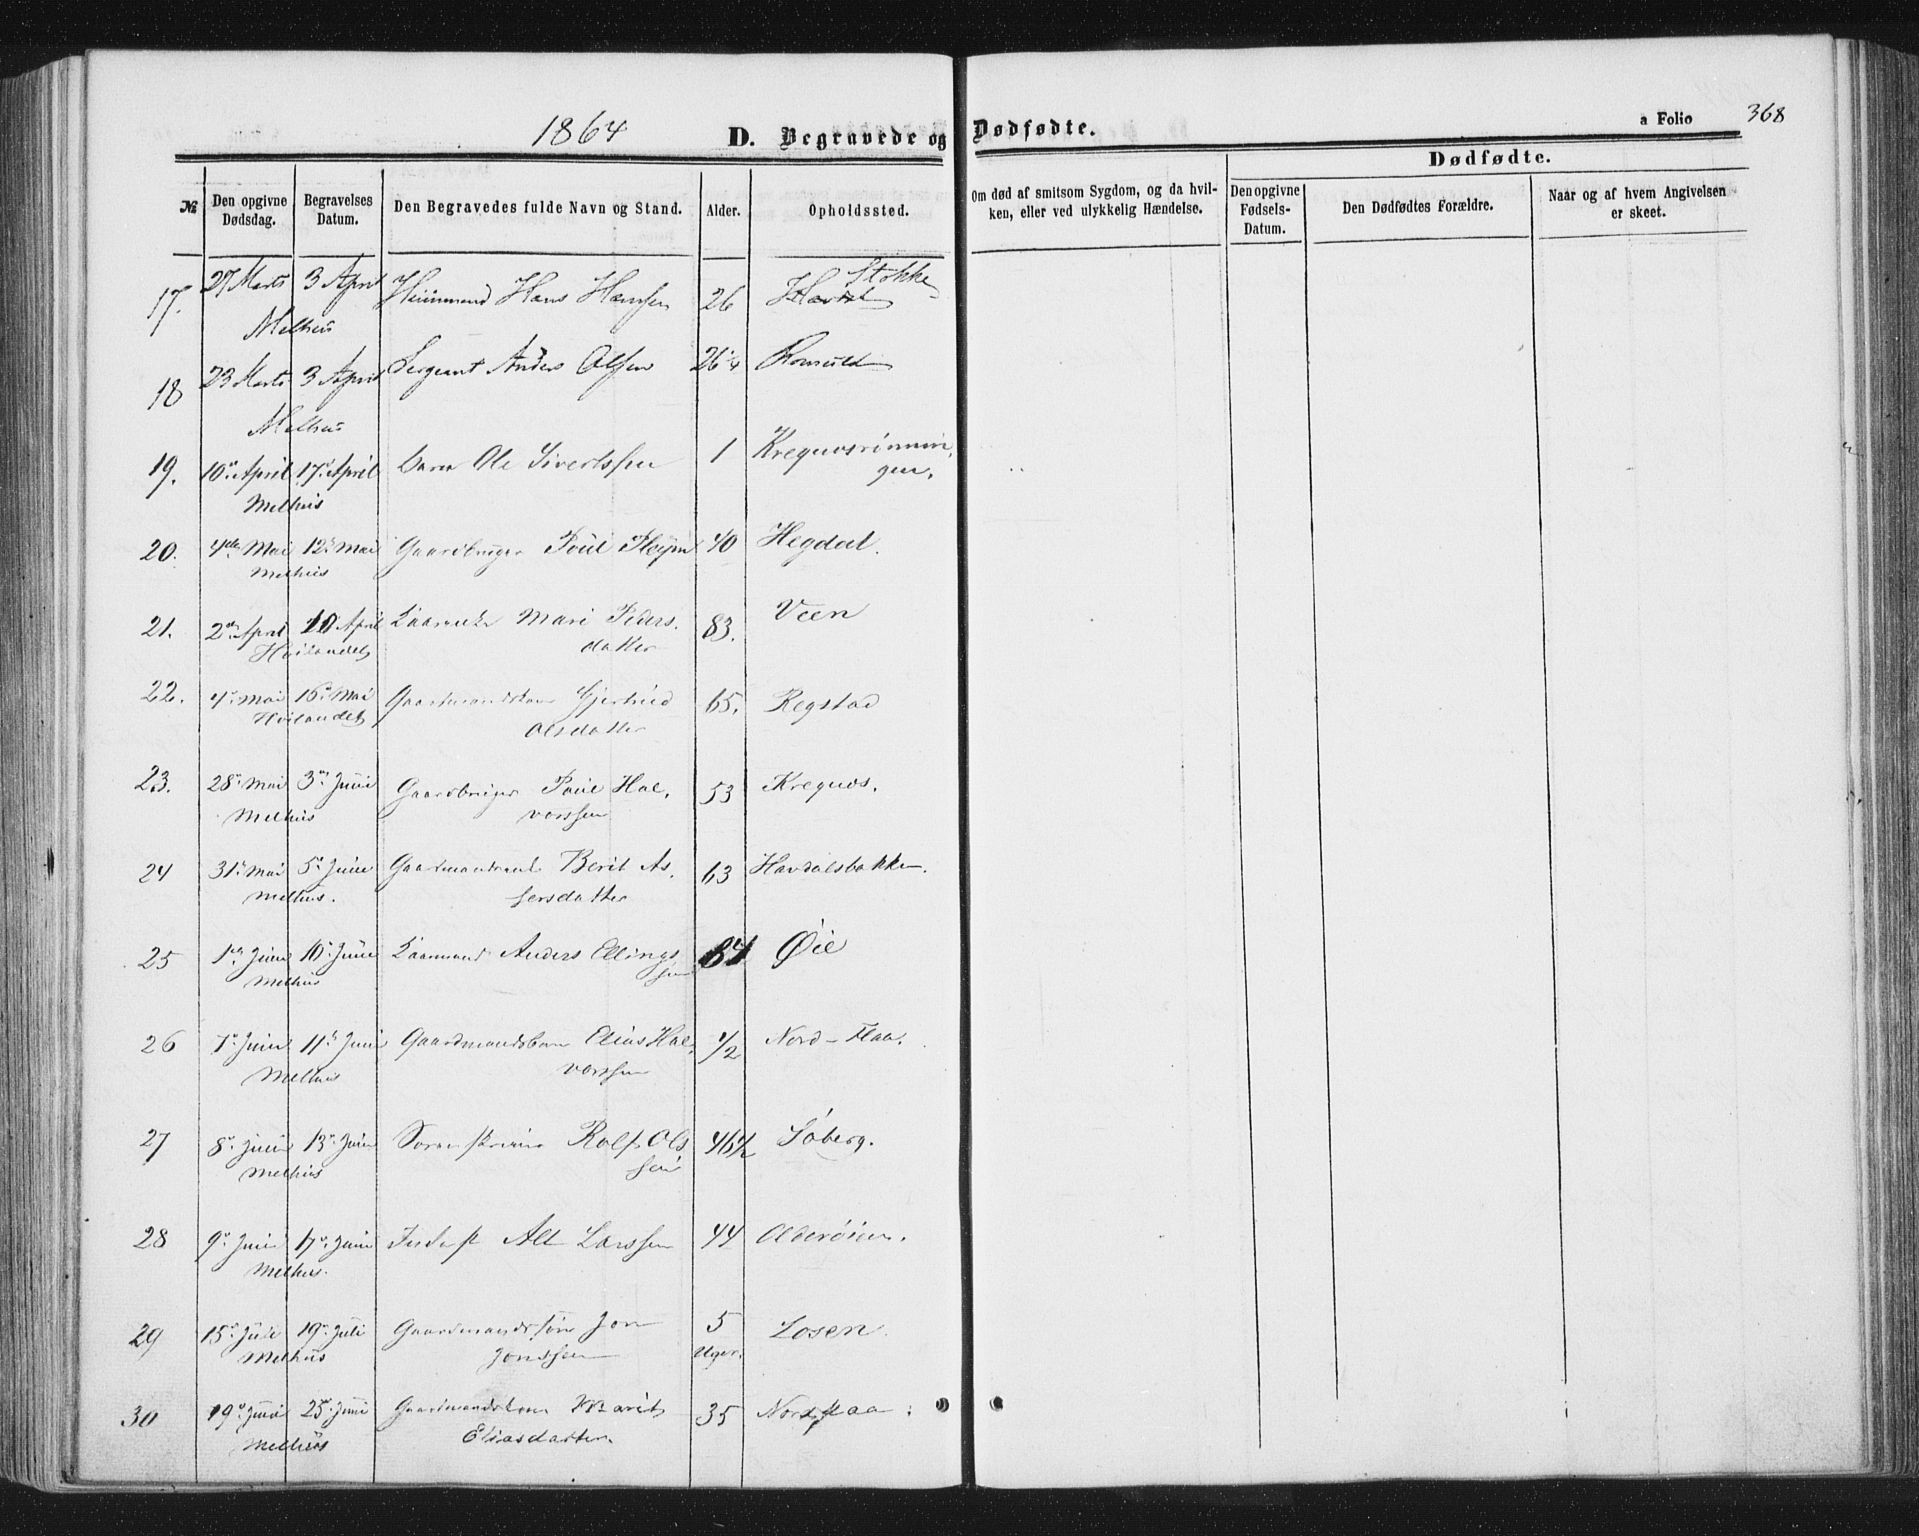 1864 D. Begravede og Dødfødte. a Folio 368
Dødfødte.
№ Den opgivne Dødsdag. Begravelses Datum. Den Begravedes fulde Navn og Stand. Alder. Opholdssted. Om død af smitsom Sygdom, og da hvilken, eller ved ulykkelig Hændelse. Den opgivne Fødsels-Datum. Den Dødfødtes Forældre. Naar og af hvem Angivelsen er skeet.
17. 27 Marts 3 April Hans Hansen 26 Stokke
Melhus
18 23 Marts 3 April Sergeant Anders Olsen 26 1/4
Melhus
19. 10 April 17 April Barn Ole Sivertssen 1
Melhus
20. 4de Mai 12 Mai Gaardbruger Poul 40 Hegdal.
Melhus
21. 2 April 10 April Mari Peders. 83. Veen
Høilandet datter
22. 4 Mai 16 Mai Gjertrud 65. Regstad
Høilandet Olsdatter
23. 28 Mai 3 Juni Gaardbruger Poul Hal, 53 Kregnes.
Melhus vorssen
24 31 Mai 5 Juni Berit As. 63 Havdalsbakken.
Melhus. sersdatter
25 1 Juni 10 Juni Anders Ellings 84 Øie
Melhus sen
26 7 Juni 11 Juni Gaardmandsbarn Elias Hal, 1/2 Nord-Flaa.
Melhus vorssen
27 8 Juni 13 Juni Rolf Ols 46 1/2 Søberg.
Melhus sen
28 9 Juni 17 Juni Inderst Larssen 44 Alderøien.
Melhus.
29 15 19 Juli Gaardmandssøn Jon 5 Losen
Melhus Jonssen Uger.
30 19 Juni 25 Juni Marit 35 Nordflaa
Melhus Eliasdatter.